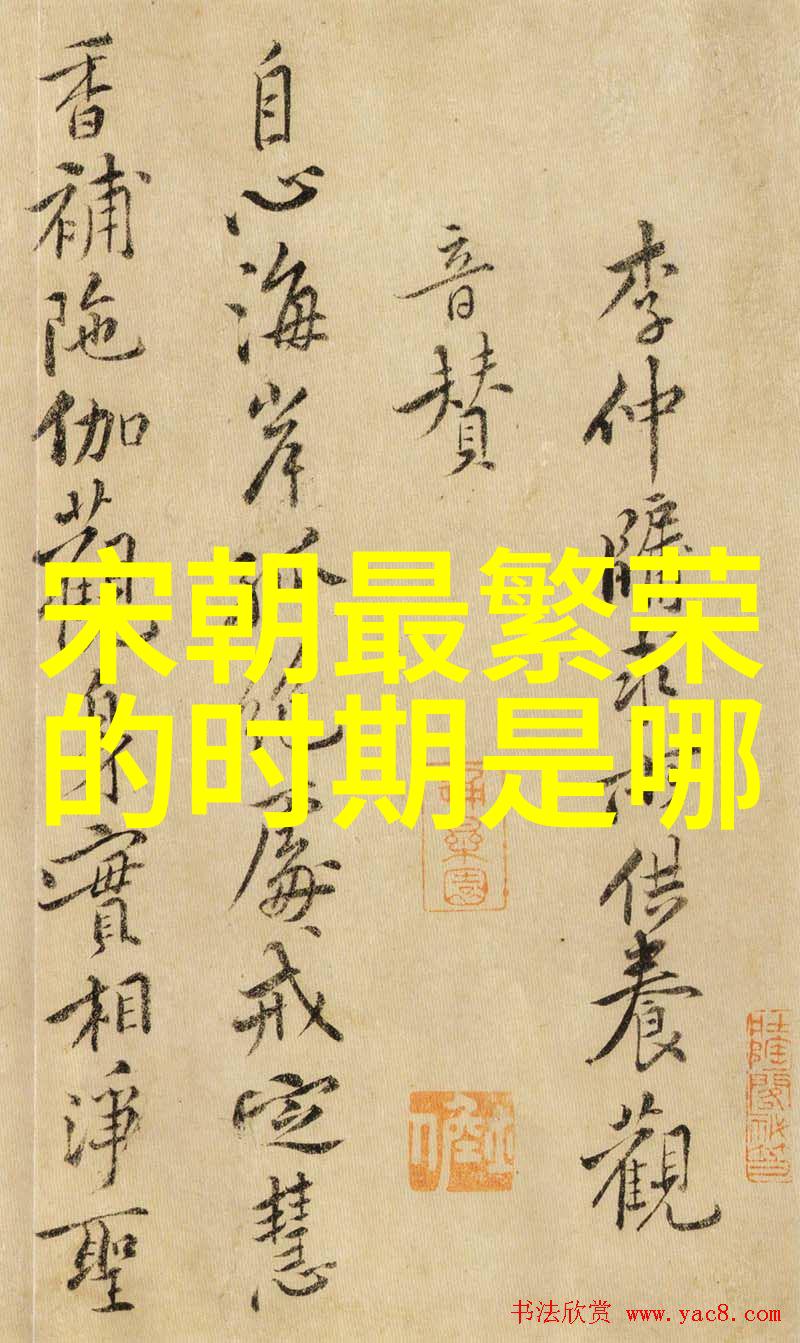 宋朝最繁荣
的时期是哪
李仲隅求所供養觀
音賛
自心海岸孤絶處戒定慧
香補陁伽觀身實相淨聖
书法欣赏 www.yac8.com